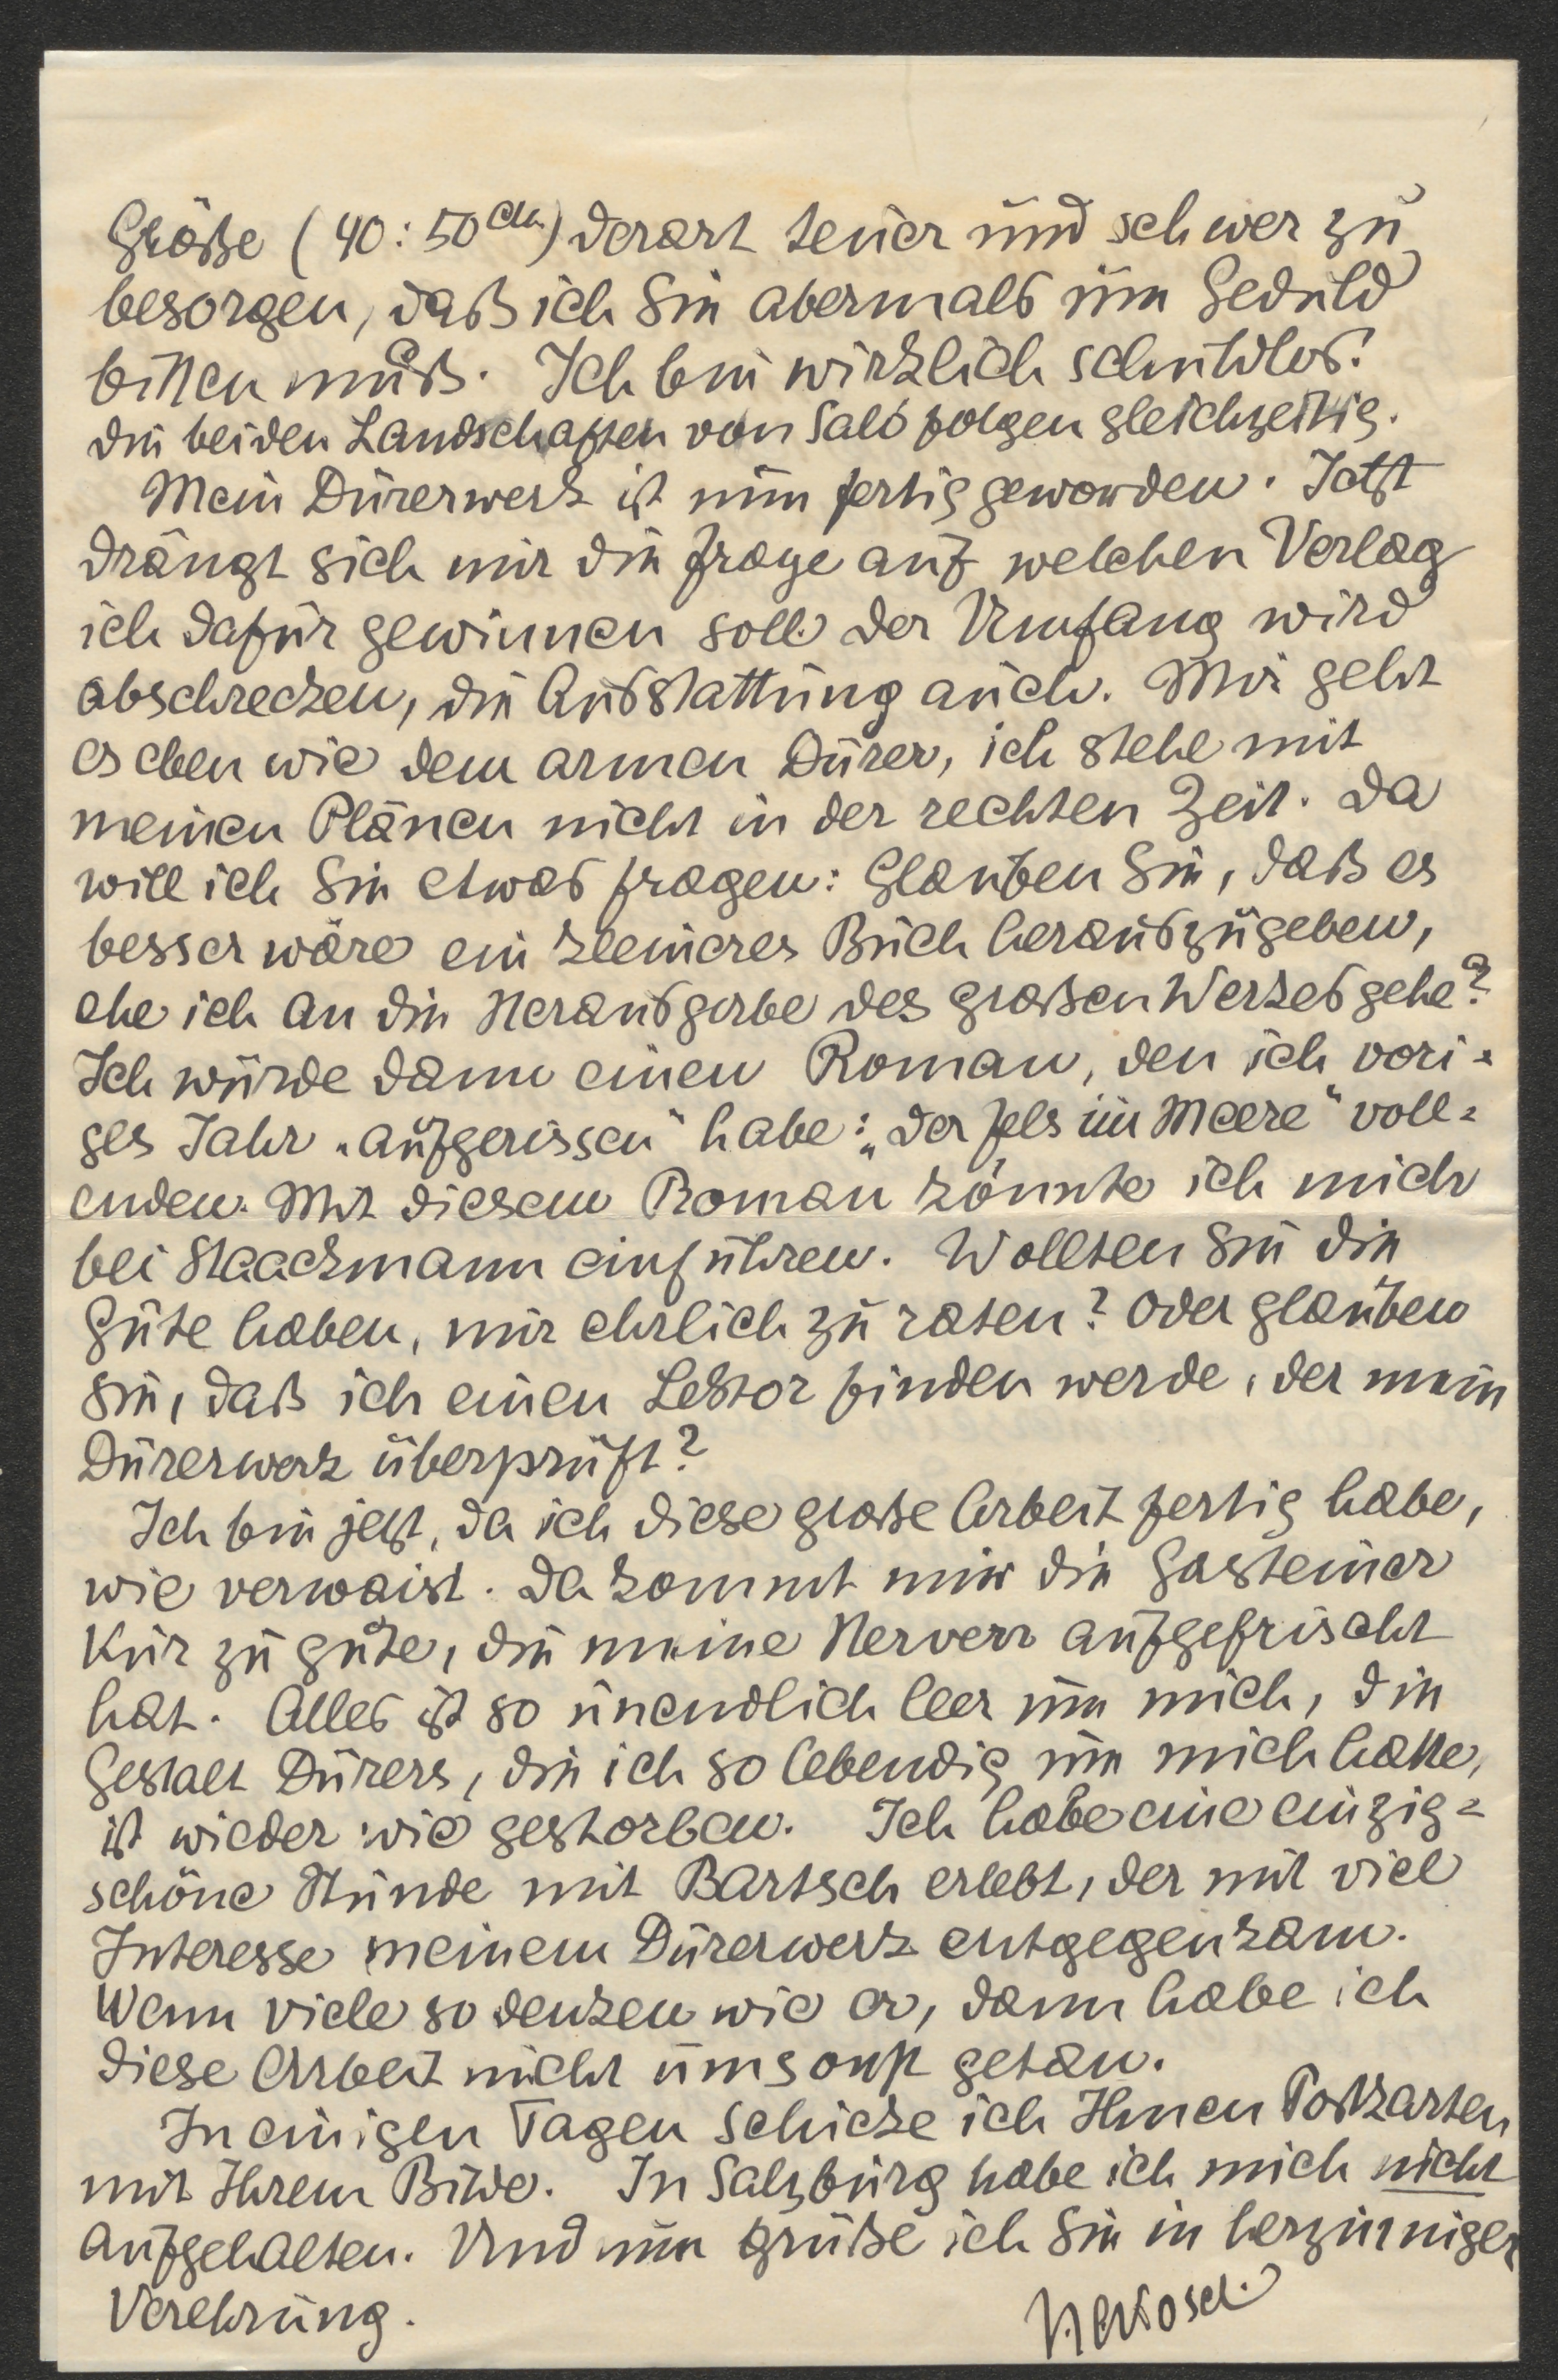 Größe (40:50 cm.) derart teuer und schwer zu
besorgen, daß ich Sie abermals um Geduld
bitten muß. Ich bin wirklich schuldlos!
Die beiden Landschaften von Saló folgen gleichzeitig.
Mein Dürerwerk ist nun fertig geworden. Jetzt
drängt sich mir die Frage auf welchen Verlag
ich dafür gewinnen soll. Der Umfang wird
abschrecken, die Ausstattung auch. Mir geht
es eben wie dem armen Dürer, ich stehe mit
meinen Plänen nicht in der rechten Zeit. Da
will ich Sie etwas fragen: Glauben Sie, daß es
besser wäre ein kleineres Buch herauszugeben,
ehe ich an die Herausgabe des großen Werkes gehe?
Ich würde dann einen Roman, den ich vori=
ges Jahr „aufgerissen“ habe: „Der Fels im Meere“ voll=
enden. Mit diesem Roman könnte ich mich
bei Staackmann einführen. Wollten Sie die
Güte haben, mir ehrlich zu raten? Oder glauben
Sie, daß ich einen Lektor finden werde, der mein
Dürerwerk überprüft?
Ich bin jetzt, da ich diese große Arbeit fertig habe,
wie verwaist. Da kommt mir die Gasteiner
Kur zu gute, die meine Nerven aufgefrischt
hat. Alles ist so unendlich leer um mich, die
Gestalt Dürers, die ich so lebendig um mich hatte,
ist wieder wie gestorben. Ich habe eine einzig=
schöne Stunde mit Bartsch erlebt, der mit viel
Interesse meinem Dürerwerk entgegenkam.
Wenn viele so denken wie er, dann habe ich
diese Arbeit nicht umsonst getan.
In einigen Tagen schicke ich Ihnen Postkarten
mit Ihrem Bilde. In Salzburg habe ich mich nicht
aufgehalten. Und nun grüße ich Sie in herzinniger
Verehrung.